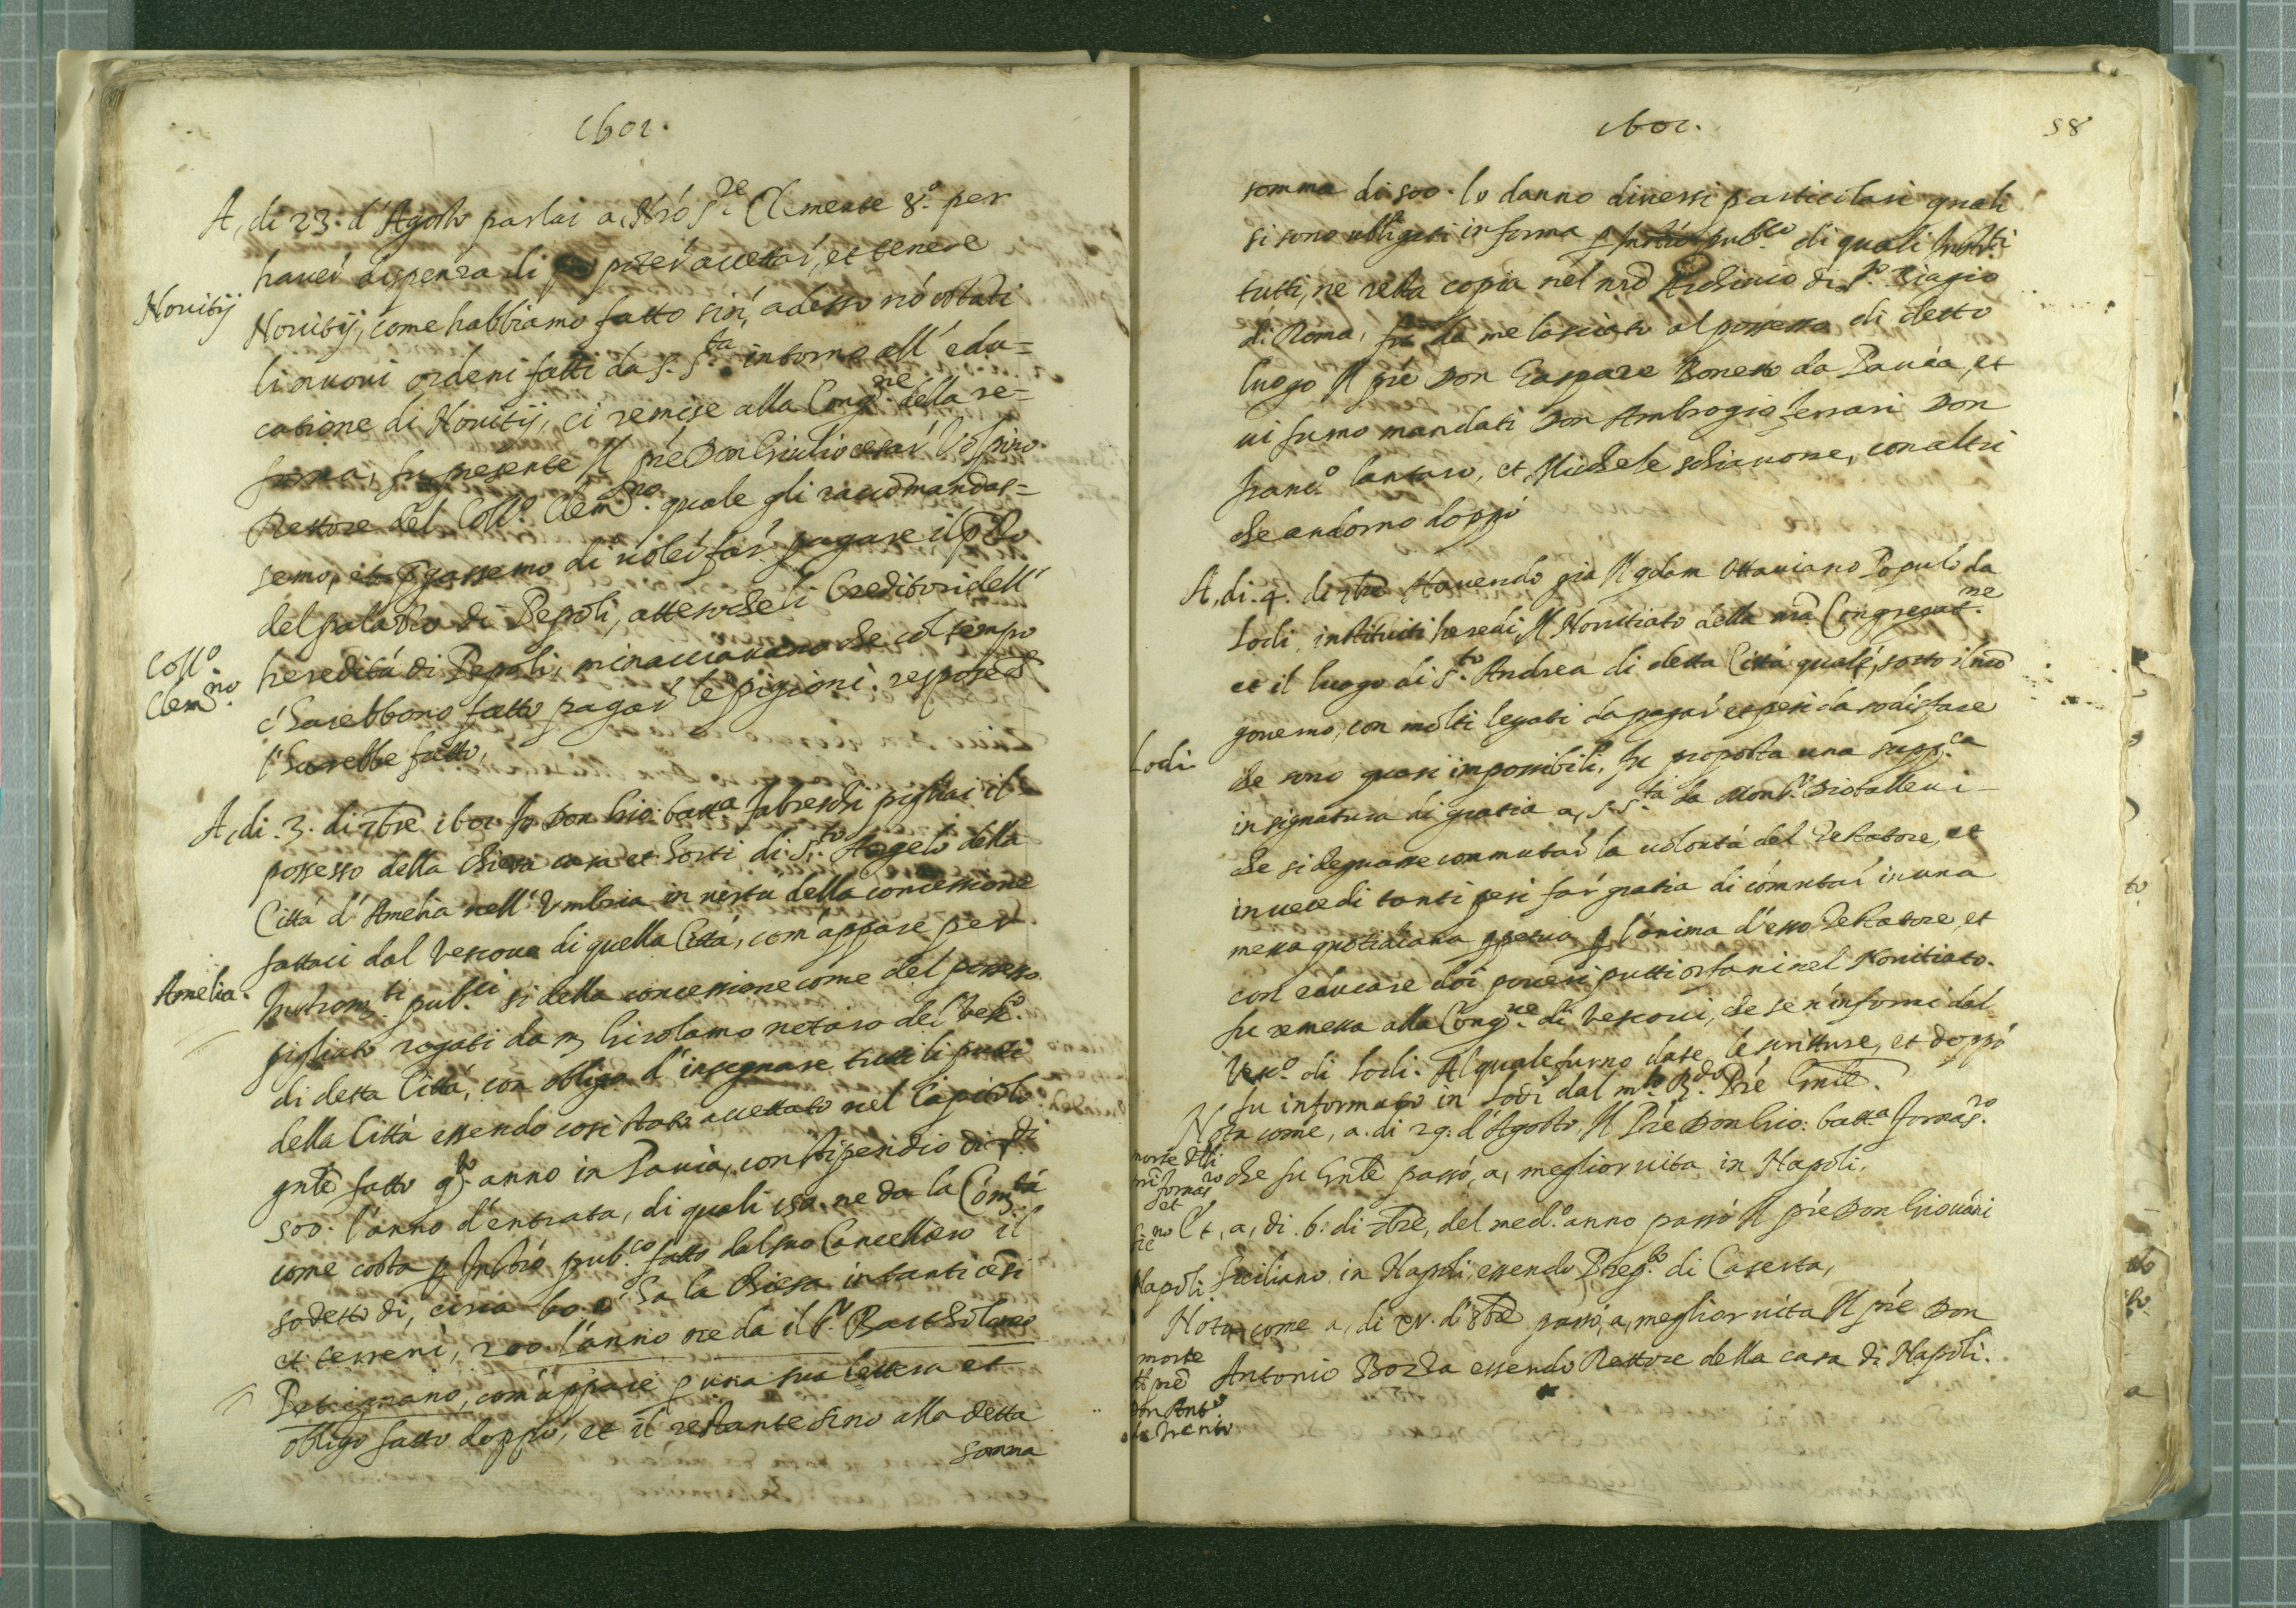 1602.
A, di 23. d'Agosto parlai a, Nrō S.re Clemente 8.o per
haver dispenza di poter accettar, et tenere
Novitij
Novitij, come habbiamo fatto sin' adesso nō ostāti
li nuovi ordeni fatti da S. S.ta intorno all' edu=
catione di Novitij, ci remise alla Cong.ne della re=
forma, fu presente Il prē Don Giulio cesar Volpino.
Rettore del Coll.o Clem.no quale gli raccōmandas=
semo, et p̄gassemo di voler far pagare il p̄zzo
del palazzo di Pepoli, atteso che li Creditori dell'
Coll.o
Clem.no
heredità di Pepoli, minacciavano che col tempo
c' harebbono fatto pagar le pigioni. respose
l' harebbe fatto,
A, di .3. di 7bre 1602 Io Don Gio: batt.a fabreschi pigliai il
possesso della chiesa casa et horti di S.to Angelo della
Città d' Amelia nell' Umbria in virtu della concessione
fattaci dal Vescovo di quella Città, com' appare per
Amelia.
Instrom.ti pub.ci si della concessione come del possesso
pigliato rogati da m. Girolamo notaro del Vesc.o
di detta Città, con obligo d' insegnare tutti li putti
della Città essendo cosi stato accettato nel Capitolo
gnle fatto q.to anno in Pavia, con stipendio di
500. l'anno d'entrata, di quali 150 ne da la Cōm.tà
come costa p Instrō pub.co fatto dal suo Cancelliero il
sodetto di, circa 60 c' ha la chiesa in tanti cēsi
et terreni, 200 l'anno ne da il S.r Bartholomeo
Petrignano, com' appare p una sua lettera et
obligo fatto doppò, et il restante sino alla detta
somma
1602.
58
somma di 500. lo danno diversi particolari quali
si sono obligati in forma p Instrō pub.co di quali Instr.ti
tutti, ne resta copia nel nrō Archivio di S.to Biagio
di Roma, fu da me lasciato al possesso di detto
luogo Il prē Don Gaspare Bonetto da Pavia, et
vi furno mandati Don Ambrogio ferrari Don
franc.o lantaro, et Michele schiavone, con altri
che andorno doppò
A, di .4. di 7bre Havendo gia Il qdam Ottaviano Populo da
Lodi, instituiti heredi Il Novitiato della nrā Congregat.ne
et il luogo di S.to Andrea di detta Città quale, sotto il nrō
governo, con molti legati da pagar et pesi da sodisfare
Lodi
che sono quasi impossibili, fu proposta una supp.ca
in signatura di gratia a, S. S.ta da Mons.r Diotallevi
che si degnasse commutar la volontà del Testatore, et
in vece di tanti pesi far gratia di cōmutar in una
messa quotidiana ppetua p l'anima d'esso Testatore, et
con educare doi poveri putti orfani nel Novitiato.
fu remessa alla Cong.ne di Vescovi, che se n' informi dal
Vesc.o di Lodi. Al quale furno date le scritture, et doppò
fu informato in Lodi dal m.to R.do Prē Gnle.
Nota come, a. di 29. d'Agosto, Il Prē Don Gio: batt.a fornas.ro
morte dlli
fornas.ro
et
che fu Gnle passò, a, meglior vita in Napoli.
Et, a, di .6. di 7bre, del med.o anno passò Il prē Don Giovāni
Napoli.
Siciliano in Napoli essendo Prep.to di Caserta,
Nota come a, di d'8bre passò, a, meglior vita Il prē Don
morte
dl prē
don Ant.o
da Trento
Antonio Bozza essendo Rettore della casa di Napoli.